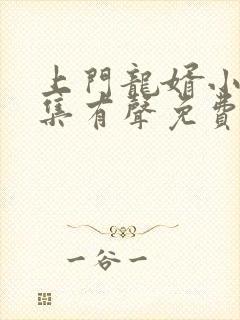 上門龍婿小
集有聲免費
一谷一